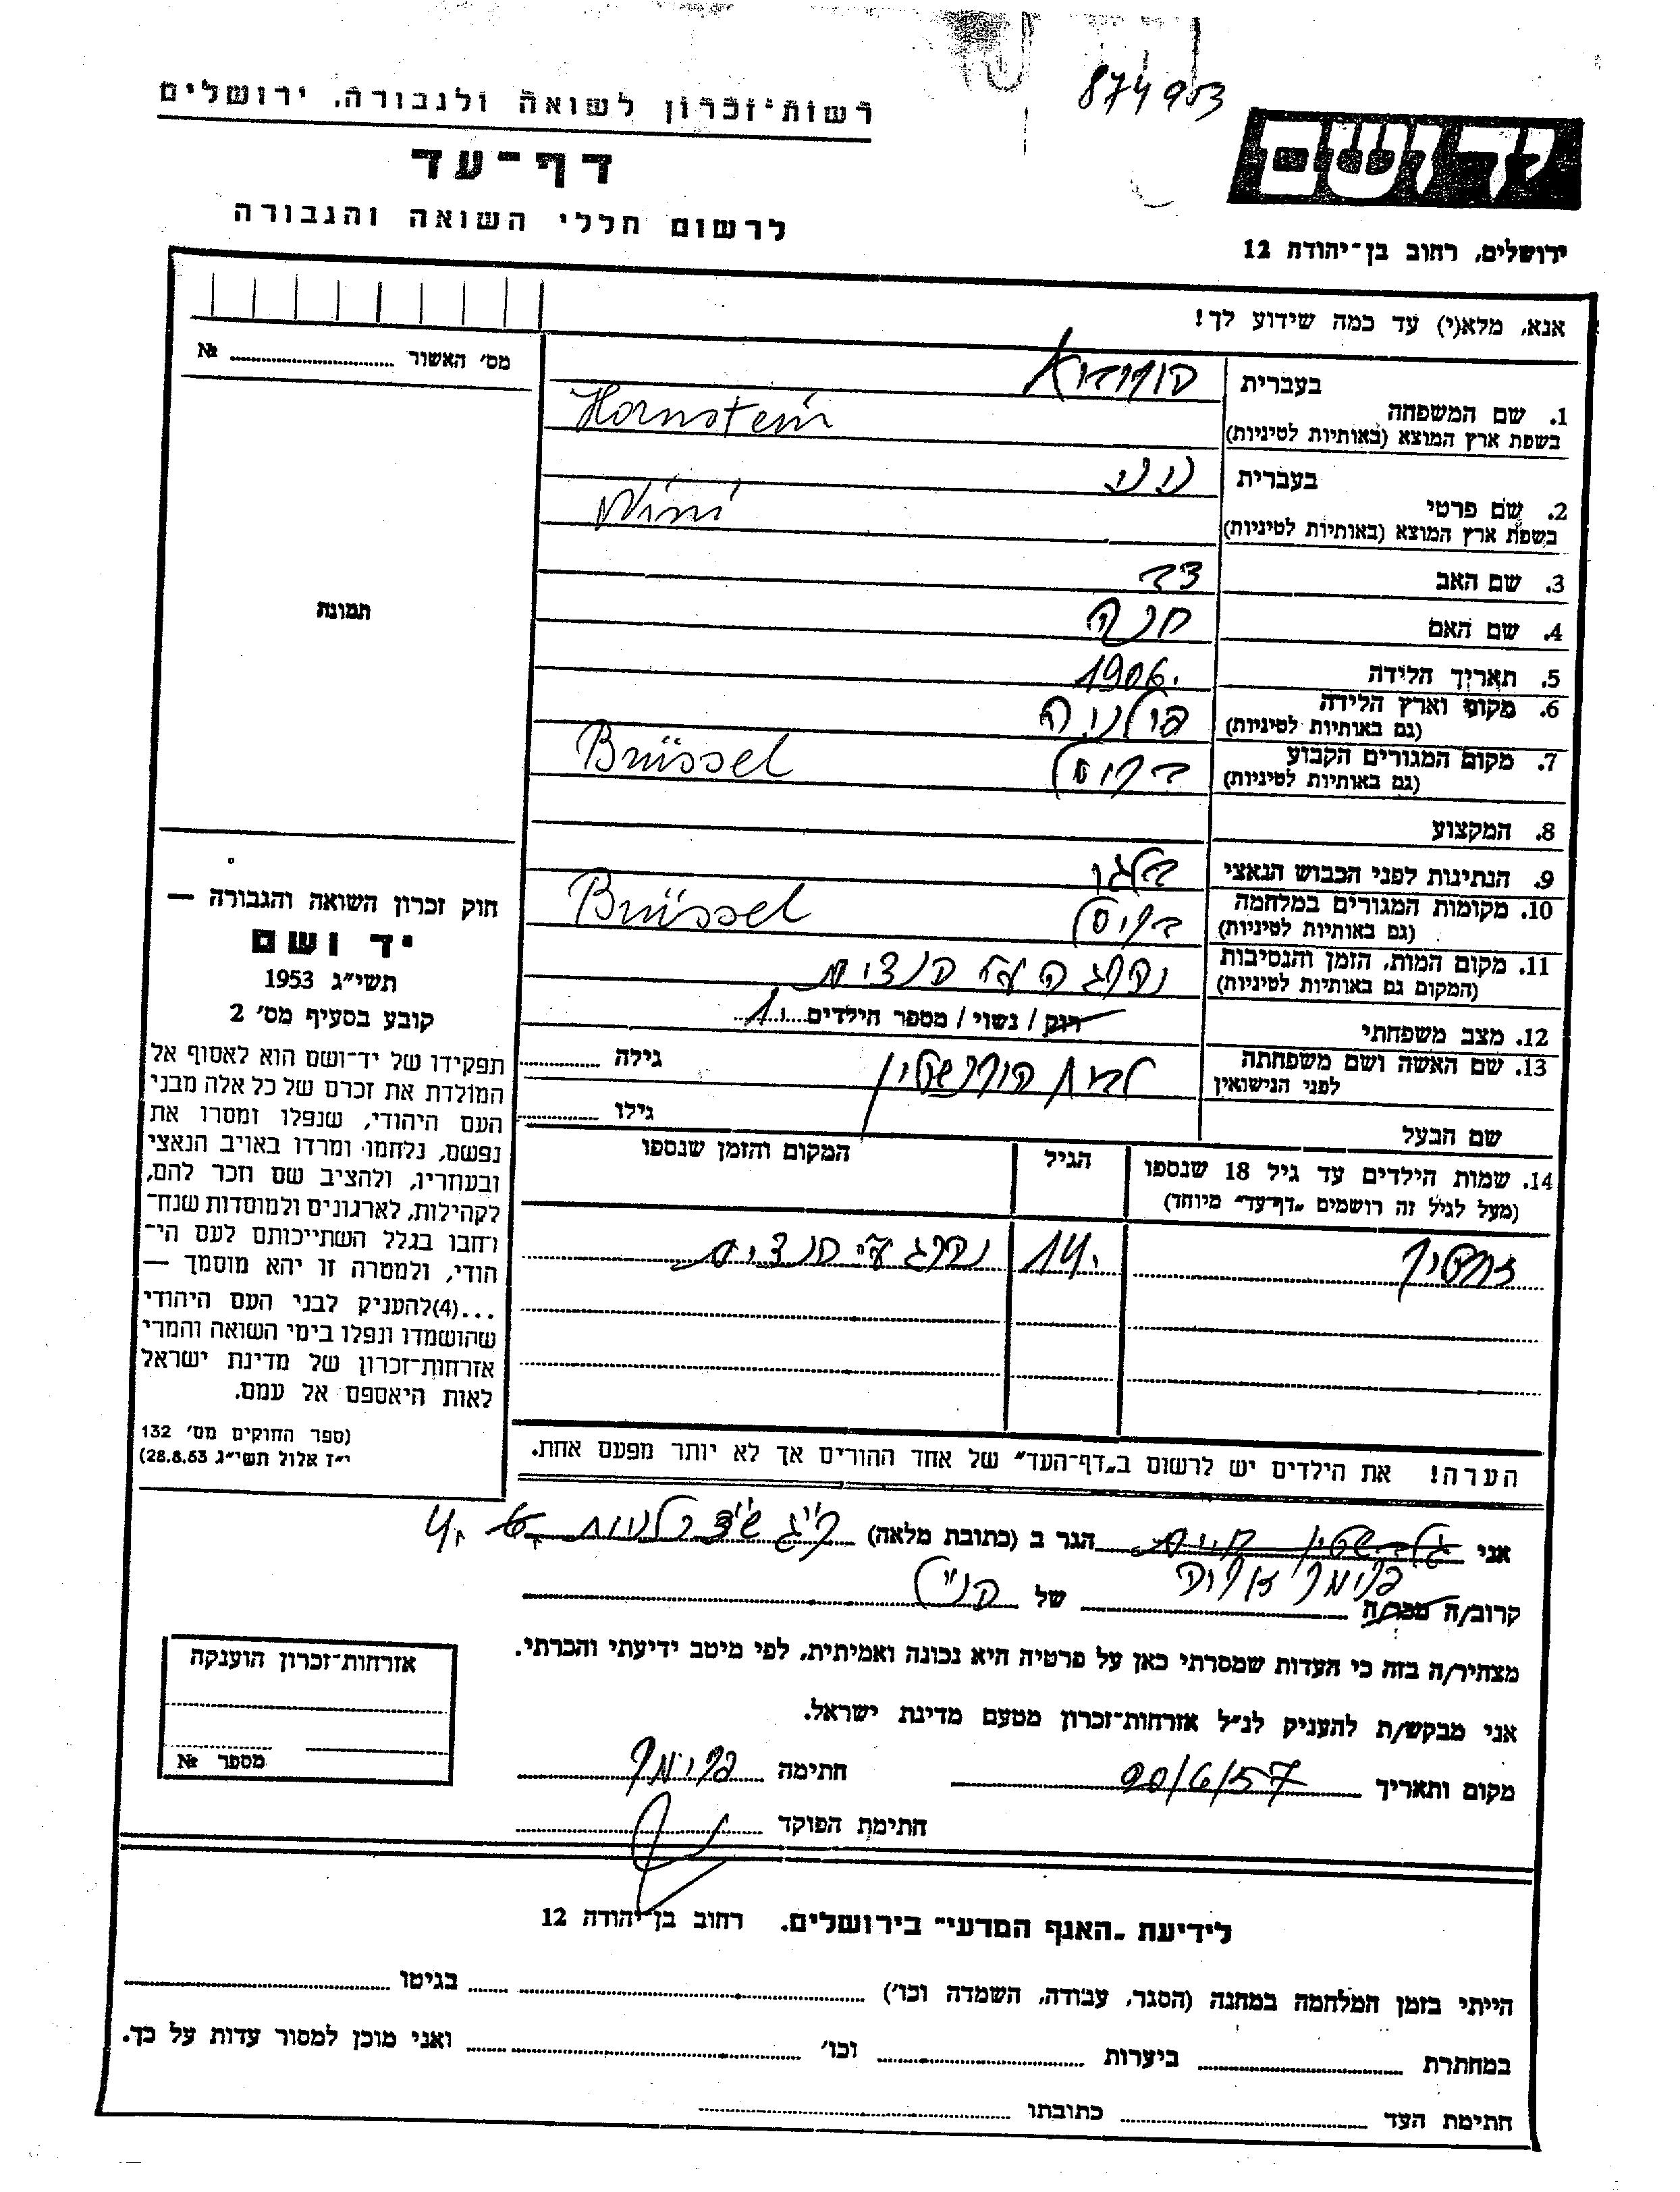 874903
רשות־זכרון לשואה ולגבורה, ירושלים
יד ושם
דף־עד
לרשום חללי השואה והגבורה
ירושלים, רחוב בן־יהודה 12
אנא, מלא(י) עד כמה שידוע לך!
מס' האשור № 
1. שם המשפחה
בעברית
בשפת ארץ המוצא (באותיות לטיניות) Hornstein
2. שם פרטי
בעברית ניני
בשפת ארץ המוצא (באותיות לטיניות) Nini
3. שם האב
4. שם האם חנה
5. תאריך הלידה 1906.
6. מקום וארץ הלידה (גם באותיות לטיניות) פולניה
7. מקום המגורים הקבוע (גם באותיות לטיניות) בריסל Brüssel
8. המקצוע
9. הנתינות לפני הכבוש הנאצי בלגי
10. מקומות המגורים במלחמה (גם באותיות לטיניות) בריסל Brüssel
11. מקום המות, הזמן והנסיבות (המקום גם באותיות לטיניות) נהרגה על הנצים
12. מצב משפחתי רוק / נשוי / מספר הילדים 1
13. שם האשה ושם משפחתה לפני הנישואין הורנשטין גילה
שם הבעל גילו
14. שמות הילדים עד גיל 18 שנספו
(מעל לגיל זה רושמים "דף־עד" מיוחד)
הגיל
המקום והזמן שנספו
14. נהרג ע"י הנצים
הערה! את הילדים יש לרשום ב"דף־העד" של אחד ההורים אך לא יותר מפעם אחת.
תמונה
חוק זכרון השואה והגבורה —
יד ושם
תשי"ג 1953
קובע בסעיף מס' 2
תפקידו של יד־ושם הוא לאסוף אל
המולדת את זכרם של כל אלה מבני
העם היהודי, שנפלו ומסרו את
נפשם, נלחמו ומרדו באויב הנאצי
ובעוזריו, ולהציב שם וזכר להם,
לקהילות, לארגונים ולמוסדות שנח־
רחבו בגלל השתייכותם לעם הי־
הודי, ולמטרה זו יהא מוסמך —
...(4)להעניק לבני העם היהודי
שהושמדו ונפלו בימי השואה והמרי
אזרחות־זכרון של מדינת ישראל
לאות היאספם אל עמם.
(ספר החוקים מס' 132
י"ז אלול תשי"ג 28.8.53)
אני הגר ב (כתובת מלאה)
קרוב/ה מכר/ה של הנ"ל
מצהיר/ה בזה כי העדות שמסרתי כאן על פרטיה היא נכונה ואמיתית, לפי מיטב ידיעתי והכרתי.
אני מבקש/ת להעניק לנ"ל אזרחות־זכרון מטעם מדינת ישראל.
מקום ותאריך 20/6/57 חתימה
חתימת הפוקד
אזרחות־זכרון הוענקה
מספר №
לידיעת "האגף המדעי" בירושלים, רחוב בן־יהודה 12
הייתי בזמן המלחמה במחנה (הסגר, עבודה, השמדה וכו') בגיטו
במחתרת ביערות וכו' ואני מוכן למסור עדות על כך.
חתימת העד כתובתו